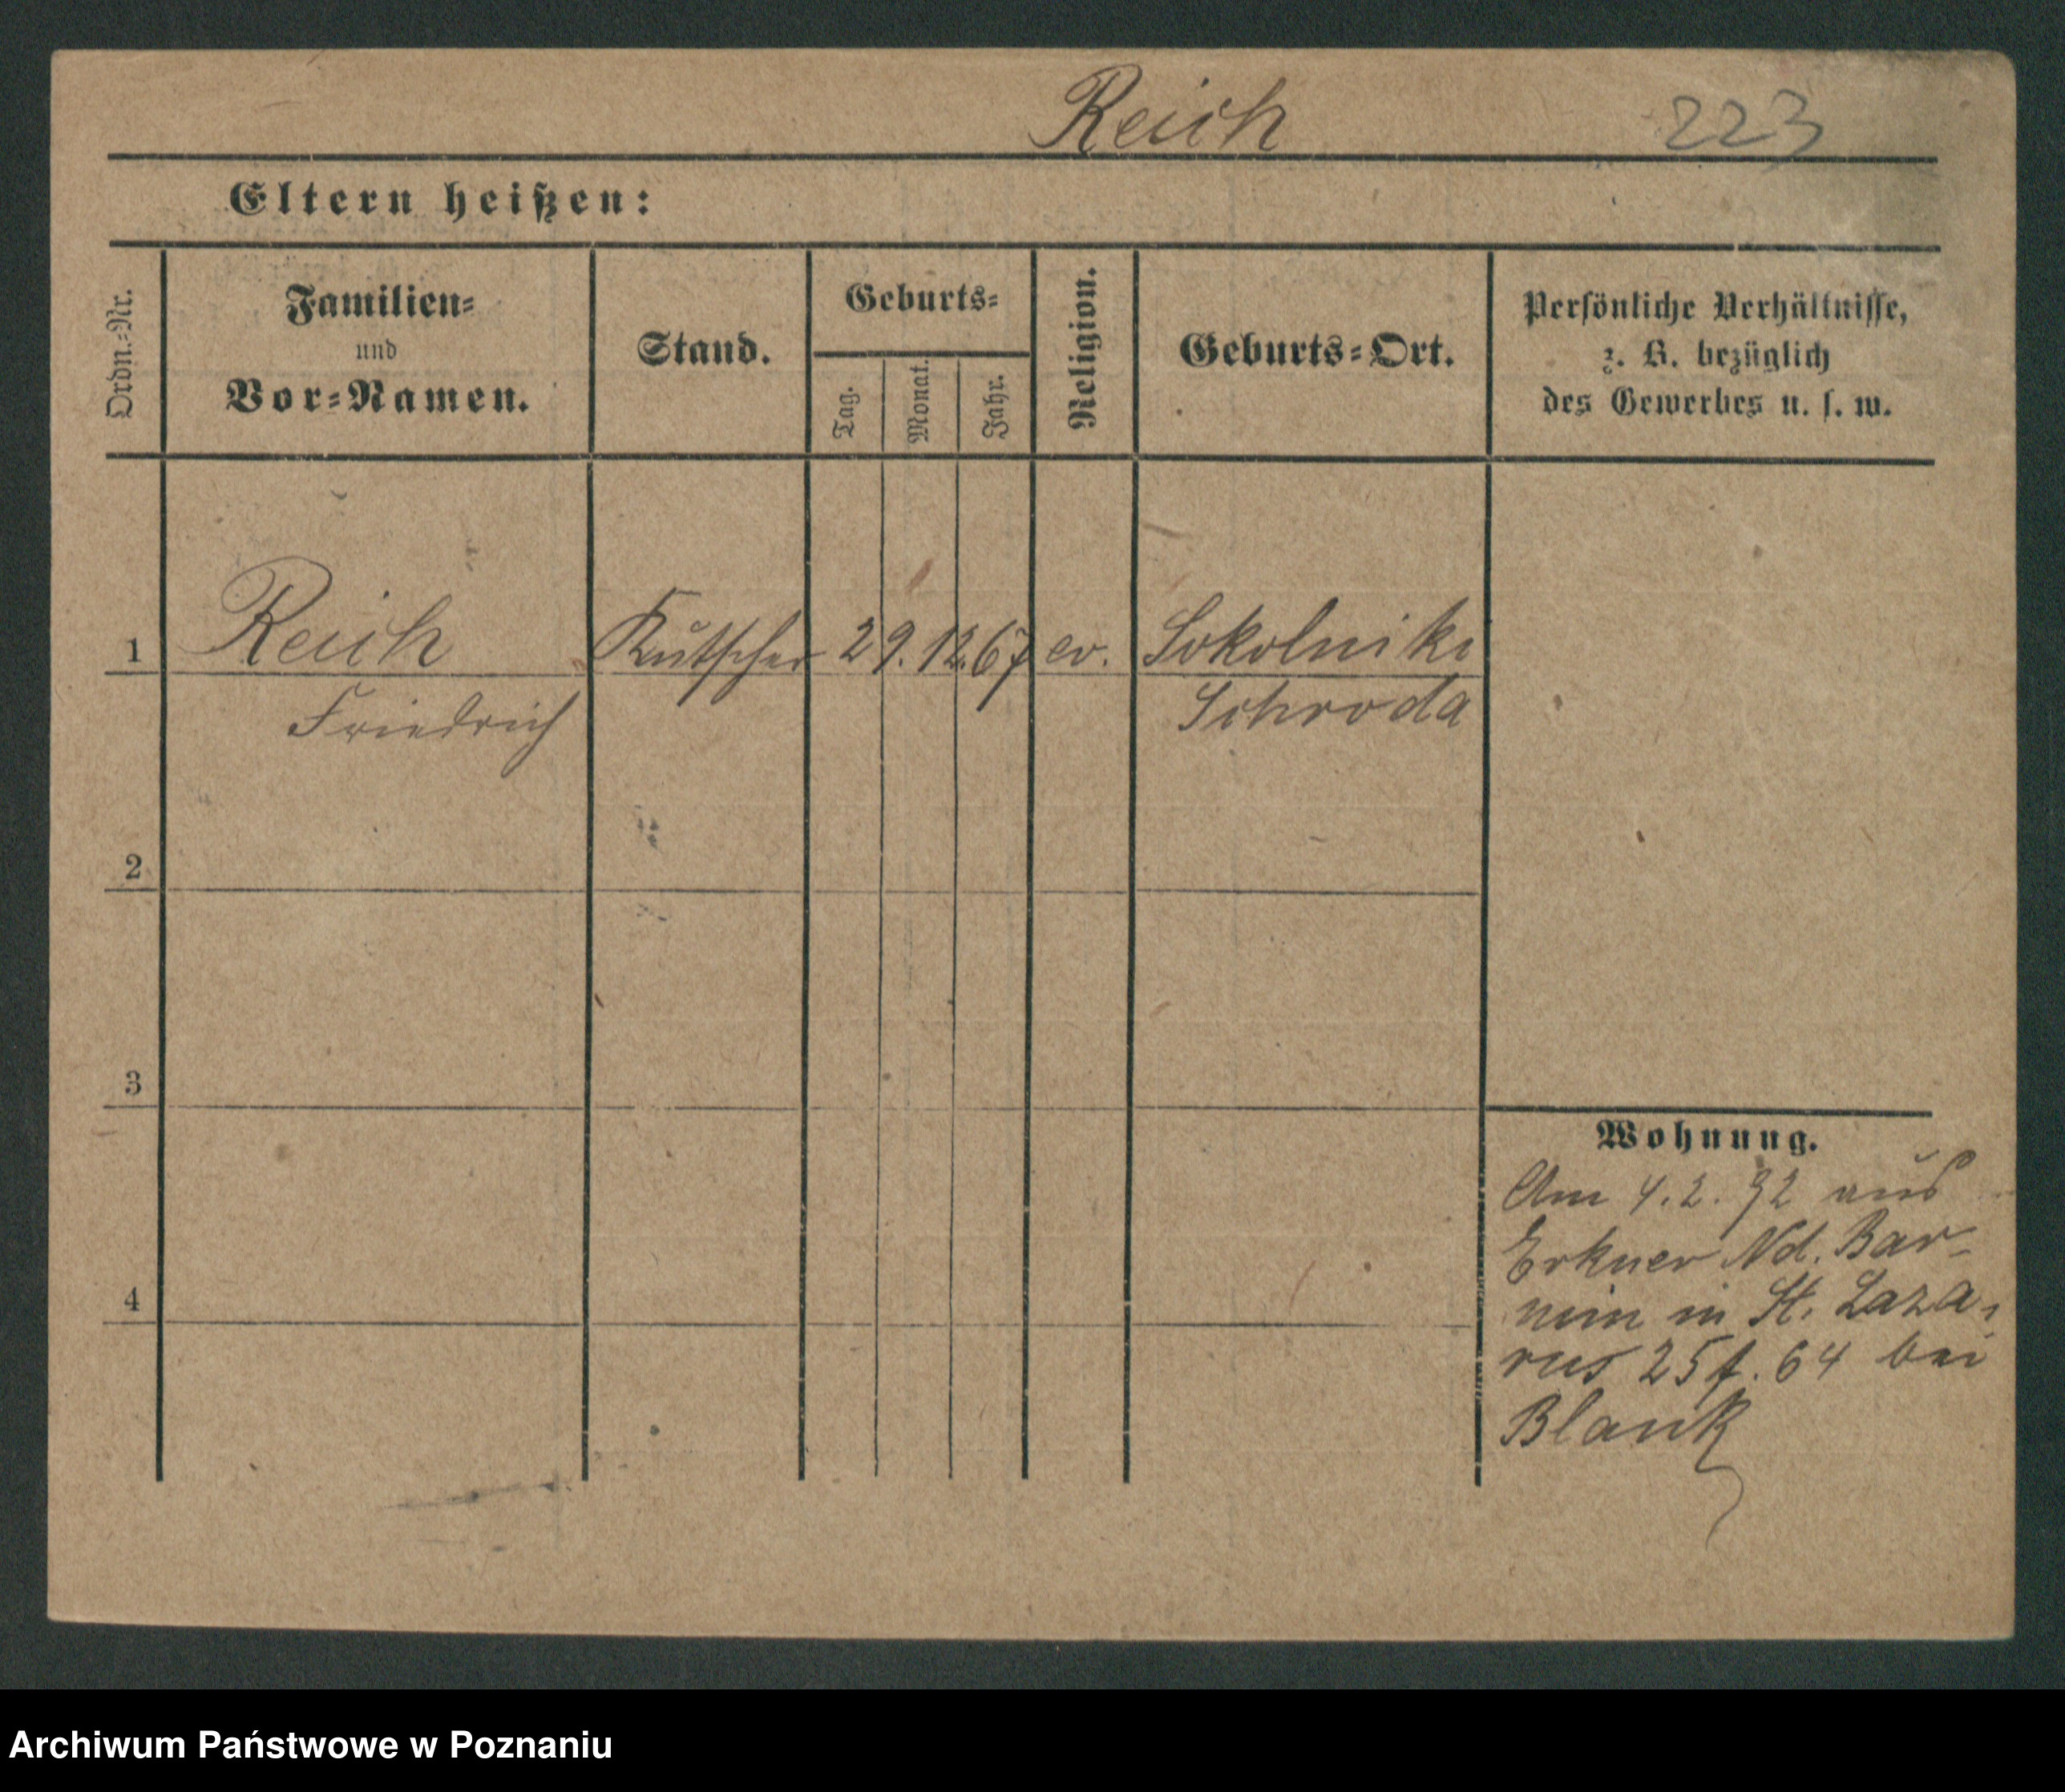 Reich 223
Eltern heißen:
Ordn.-Nr.
Familien-
und
Vor-Namen.
Stand.
Geburts-
Tag.
Monat.
Jahr.
Religion.
Geburts-Ort.
Persönliche Verhältnisse,
z. B. bezüglich
des Gewerbes u. s. w.
1 Reich Kutscher 29. 12. 67 ev. Sokolniki
Friedrich Schroda
2
3
4
Wohnung.
Am 4. 2. 92 aus
Erkner Nd. Bar-
nim in St. Laza-
rus 25 f. 64 bei
Blank
Archiwum Państwowe w Poznaniu